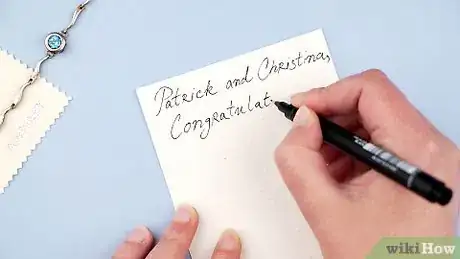 Patrick and Christina,
Congratulat
wikiHow